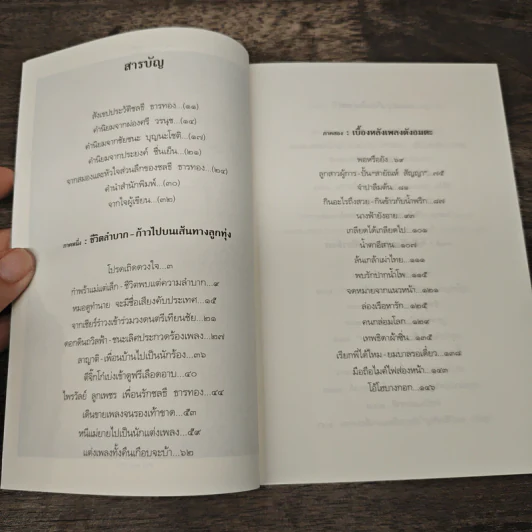 สารบัญ
สังเขปประวัติชลธี ธารทอง...(๑๑)
คำนิยมจากผ่องศรี วรนุช...(๑๔)
คำนิยมจากชัยชนะ บุญนะโชติ...(๑๗)
คำนิยมจากประยงค์ ชื่นเย็น...(๒๑)
จากสมองและหัวใจส่วนลึกของชลธี ธารทอง...(๒๔)
คำนำสำนักพิมพ์...(๓๐)
จากใจผู้เขียน...(๓๒)
ภาคหนึ่ง : ชีวิตลำบาก - ก้าวไปบนเส้นทางลูกทุ่ง
โปรดเถิดดวงใจ...๓
กำพร้าแม่แต่เล็ก - ชีวิตพบแต่ความลำบาก...๙
หมอดูทำนาย จะมีชื่อเสียงคับประเทศ...๑๕
จากเชียร์รำวงเข้าร่วมวงดนตรีเทียนชัย...๒๑
ดอกดินถวิลฟ้า - ชนะเลิศประกวดร้องเพลง...๒๗
ลาญาติ - เพื่อนบ้านไปเป็นนักร้อง...๓๖
ตีจิ๊กโก๋เบ่งเข้าดูฟรีเลือดอาบ...๔๐
ไพรวัลย์ ลูกเพชร เพื่อนรักชลธี ธารทอง...๔๔
เดินขายเพลงจนรองเท้าขาด...๕๓
หนีแม่ยายไปเป็นนักแต่งเพลง...๕๙
แต่งเพลงทั้งคืนเกือบจะบ้า...๖๒
ภาคสอง : เบื้องหลังเพลงดังอมตะ
พอหรือยัง...๖๙
ลูกสาวผู้การ - ปั้น "สายัณห์ สัญญา"...๗๕
จำปาลืมต้น...๘๑
กินอะไรถึงสวย - กินข้าวกับน้ำพริก...๘๗
นางฟ้ายังอาย...๙๓
เกลียดได้เกลียดไป...๑๐๑
น้ำตาอีสาน...๑๐๗
ล้นเกล้าเผ่าไทย...๑๑๑
พบรักปากน้ำโพ...๑๑๕
จดหมายจากแนวหน้า...๑๒๑
ล่องเรือหารัก...๑๒๕
คนกล่อมโลก...๑๒๙
เทพธิดาผ้าซิ่น...๑๓๕
เรียกพี่ได้ไหม - ยมบาลรอเดี๋ยว...๑๓๘
มือถือไมค์ไฟส่องหน้า...๑๔๓
ไอ้โฮบางกอก...๑๔๖